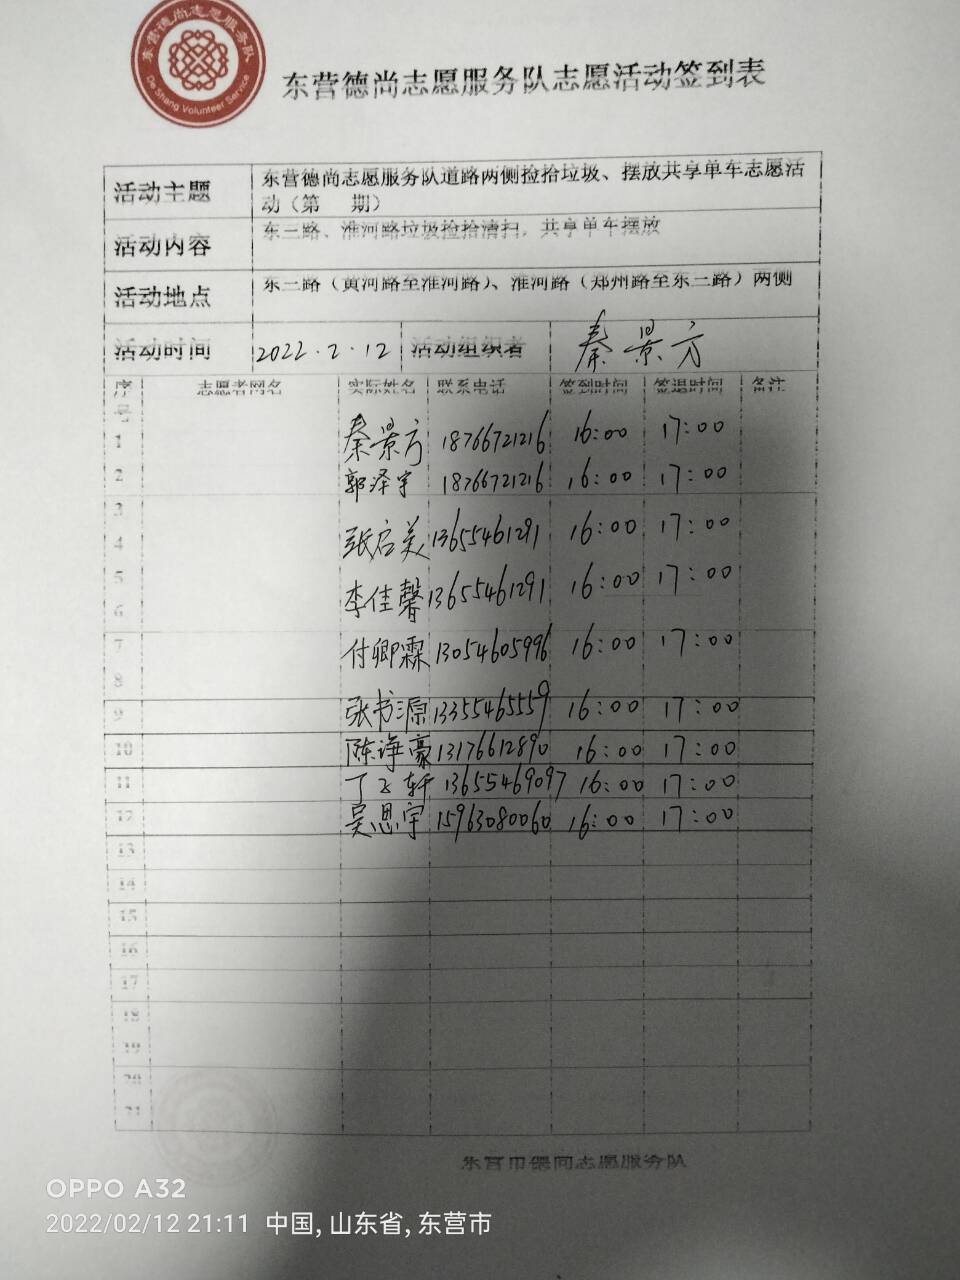 东营德尚志愿服务队
De Shang Volunteer Service
东营德尚志愿服务队志愿活动签到表
活动主题 东营德尚志愿服务队道路两侧捡拾垃圾、摆放共享单车志愿活
动（第 期）
活动内容 东三路、淮河路垃圾捡拾清扫，共享单车摆放
活动地点 东二路（黄河路至淮河路）、淮河路（郑州路至东三路）两侧
活动时间 2022.2.12 活动组织者 秦景方
序号 志愿者网名 实际姓名 联系电话 签到时间 签退时间 备注
1 秦景方 18766721216 16:00 17:00
2 郭泽宇 18766721216 16:00 17:00
3
4 张启美 13655461291 16:00 17:00
5
6 李佳馨 13655461291 16:00 17:00
7 付卿霖 13054605996 16:00 17:00
8
9 张书源 13355465559 16:00 17:00
10 陈诤豪 13176612890 16:00 17:00
11 丁飞轩 13655469097 16:00 17:00
12 吴思宇 15963080060 16:00 17:00
13
14
15
16
17
18
19
20
21
东营市德尚志愿服务队
OPPO A32
2022/02/12 21:11 中国, 山东省, 东营市